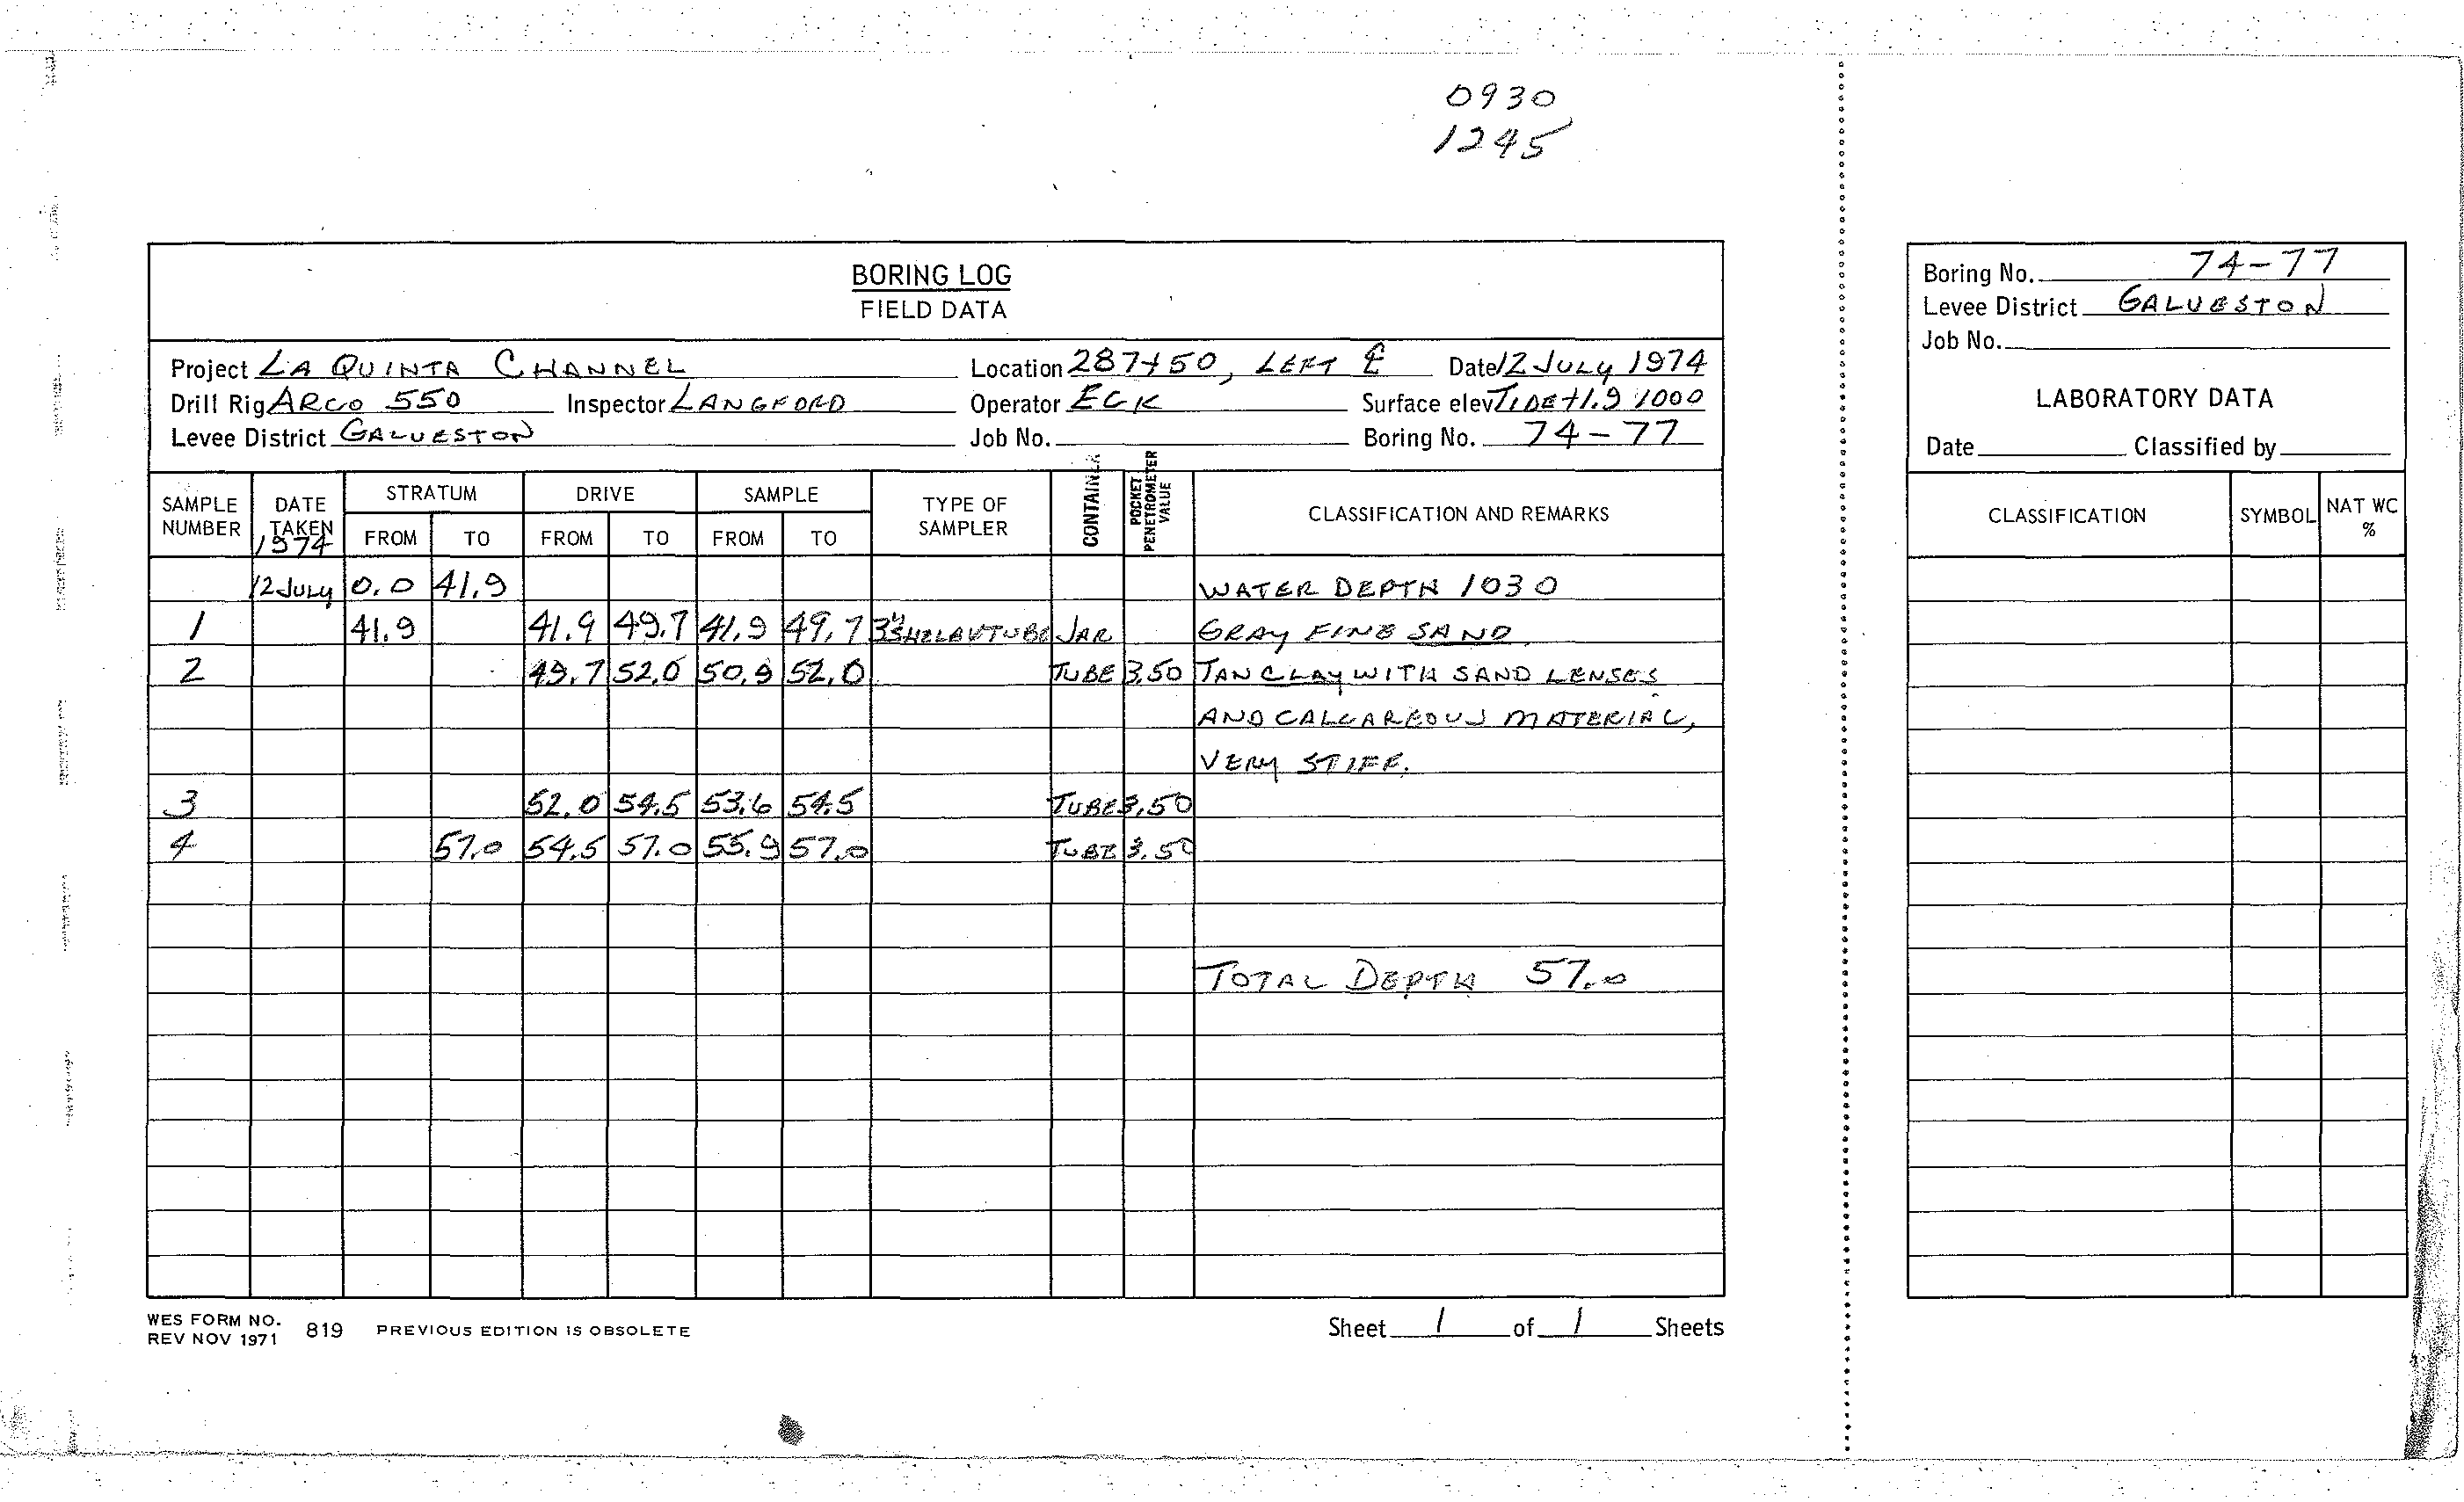 0930
1245
BORING LOG
FIELD DATA
Project LA QUINTA CHANNEL Location 287+50, LEFT ℄ Date 12 JULY 1974
Drill Rig ARCO 550 Inspector LANGFORD Operator ECK Surface elev TIDE +1.9 1000
Levee District GALVESTON Job No. Boring No. 74-77
SAMPLE NUMBER DATE TAKEN 1974 STRATUM FROM TO DRIVE FROM TO SAMPLE FROM TO TYPE OF SAMPLER CONTAINER POCKET PENETROMETER VALUE CLASSIFICATION AND REMARKS
12 JULY 0.0 41.9 WATER DEPTH 1030
1 41.9 41.9 49.7 41.9 49.7 3" SHELBY TUBE JAR GRAY FINE SAND
2 49.7 52.0 50.9 52.0 TUBE 3.50 TAN CLAY WITH SAND LENSES
AND CALCAREOUS MATERIAL,
VERY STIFF.
3 52.0 54.5 53.6 54.5 TUBE 3.50
4 57.0 54.5 57.0 55.9 57.0 TUBE 3.50
TOTAL DEPTH 57.0
WES FORM NO. 819 PREVIOUS EDITION IS OBSOLETE
REV NOV 1971
Sheet 1 of 1 Sheets
Boring No. 74-77
Levee District GALVESTON
Job No.
LABORATORY DATA
Date Classified by
CLASSIFICATION SYMBOL NAT WC %